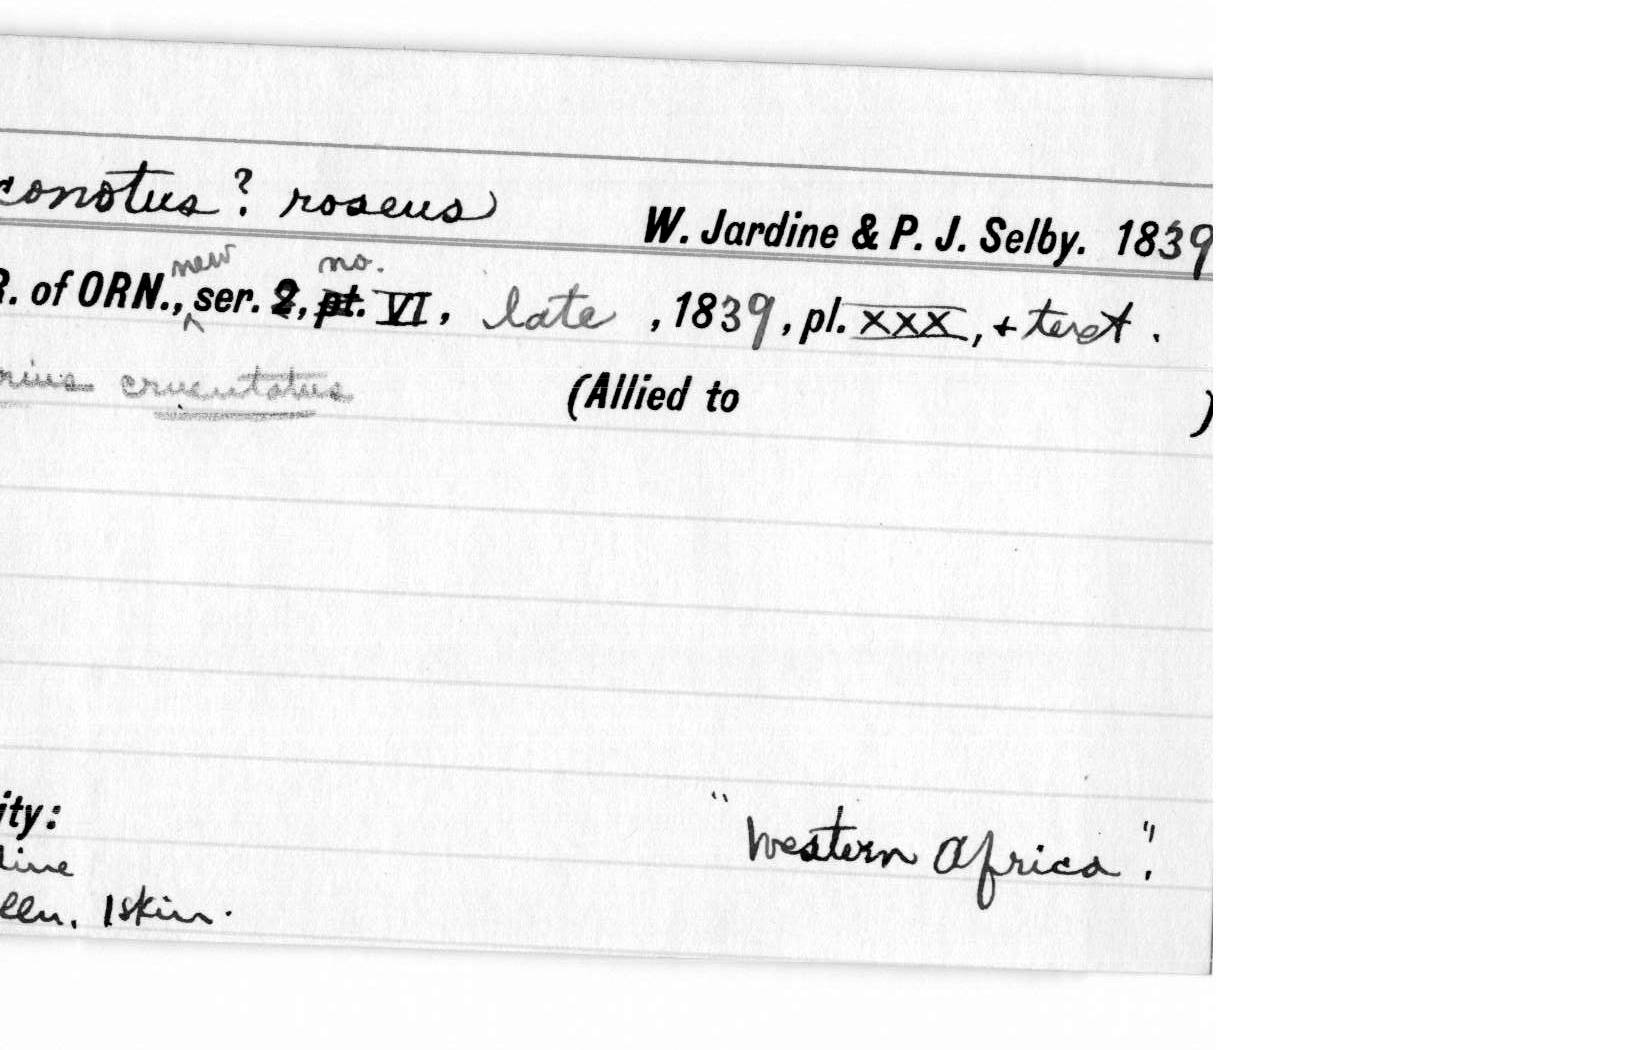 conotus ? roseus W. Jardine & P. J. Selby. 1839
new no.
R. of ORN., ser. 2, pt. VI, late , 1839, pl. XXX, + text .
rius cruentatus (Allied to )
ity: "Western Africa".
dine
lln. 1 skin.